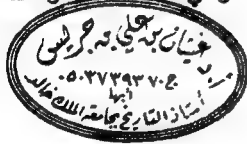 أ.د/ غيثان بن علي بن جريس
ج ٠٥٠٣٧٣٩٣٧٠
أبها
أستاذ التاريخ بجامعة الملك خالد